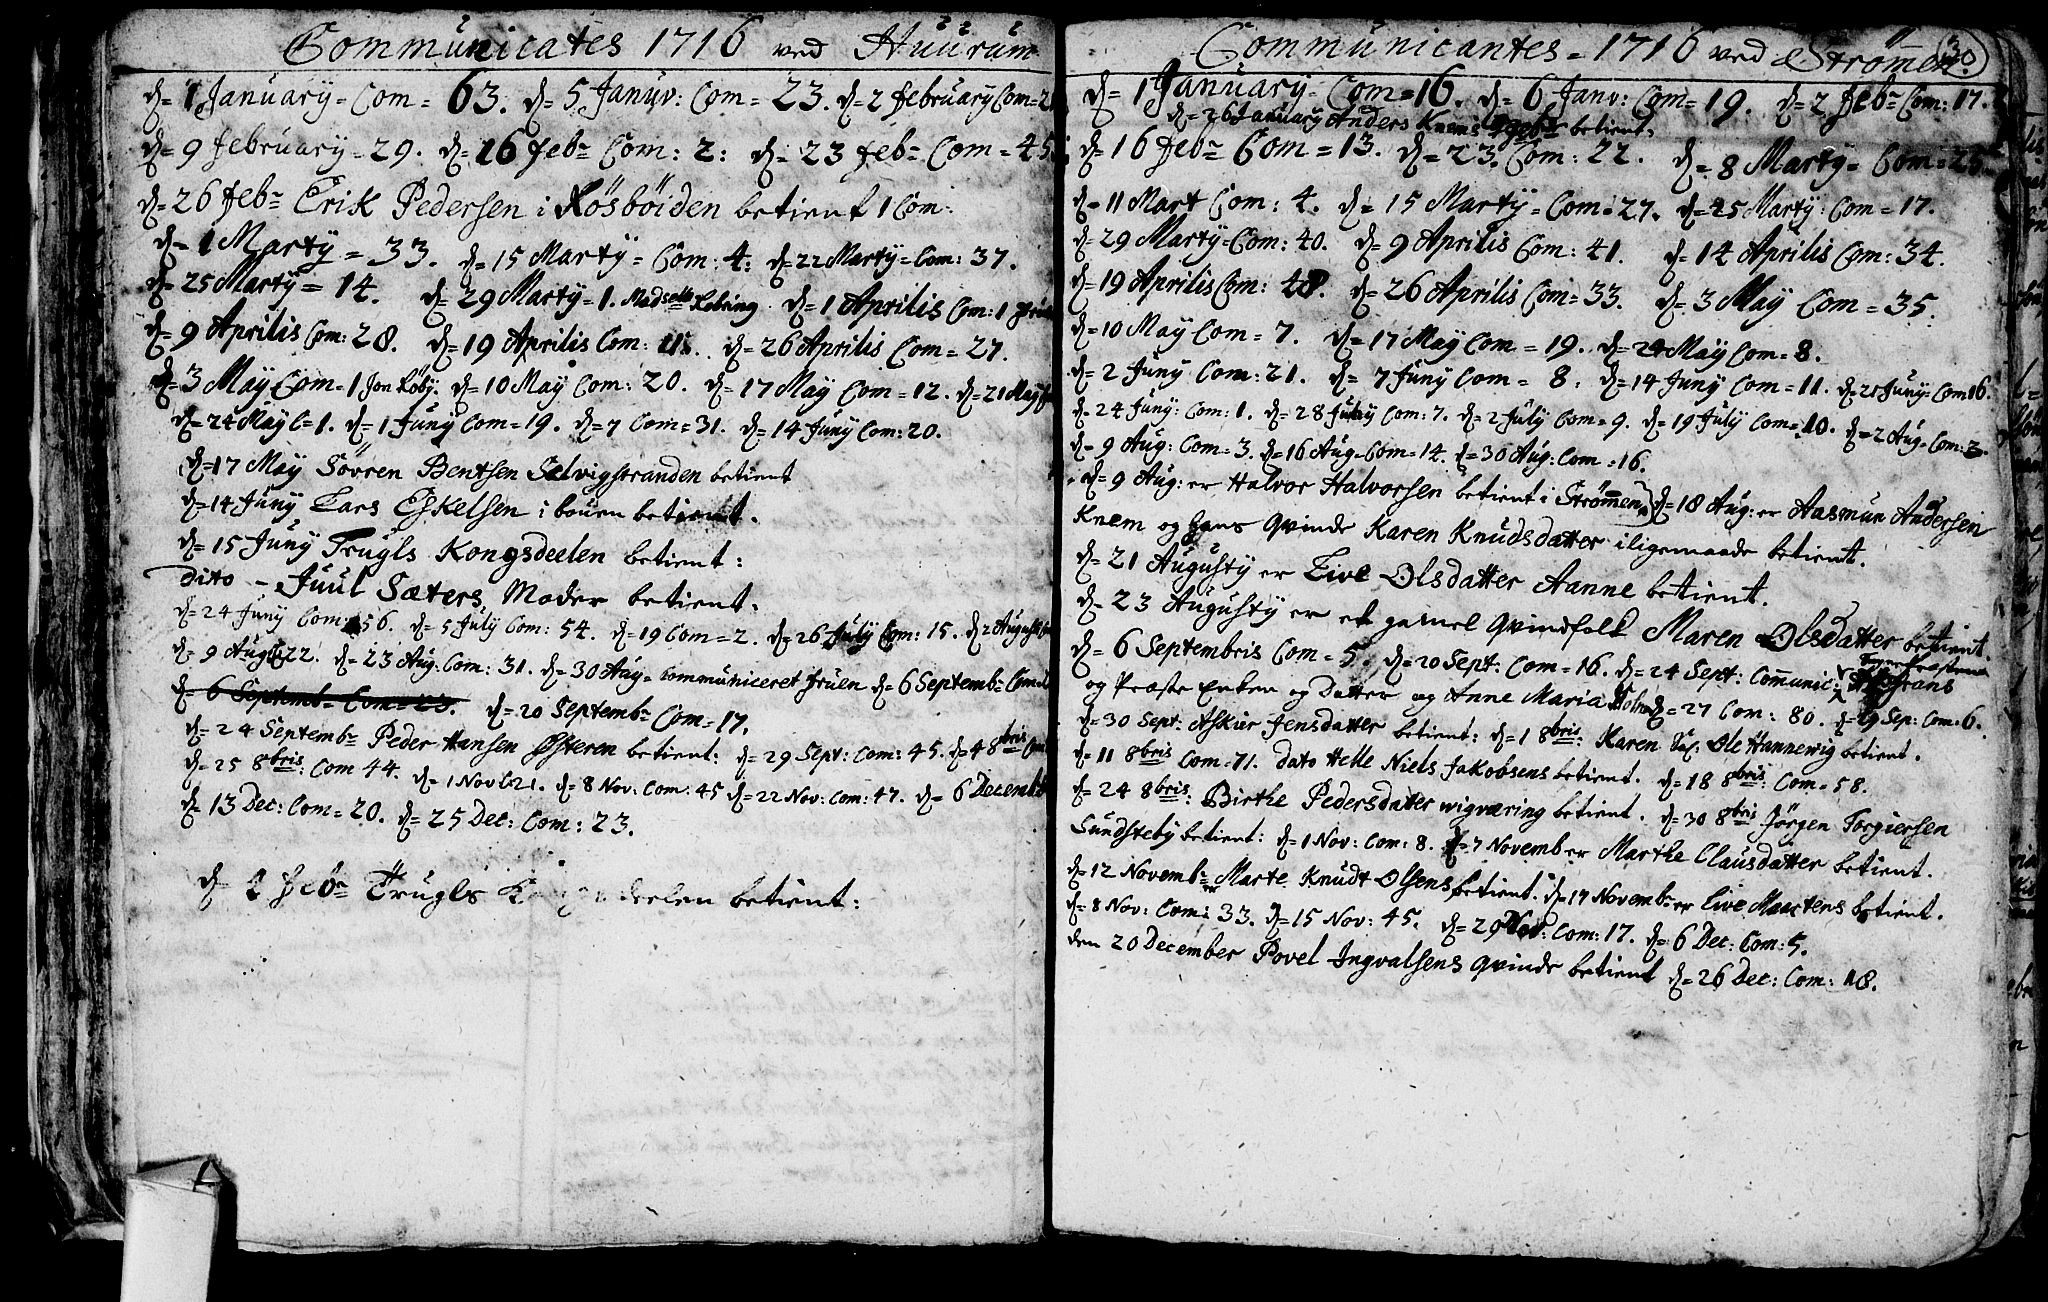 Communicates 1716 ved Húúrúm
d= 1 January= Com= 63. d= 5 Janúv: Com= 23. d= 2 february Com= 2
d= 9 february= 29. d= 16 febr Com: 2: d= 23 feb= Com= 45
d= 26 febr Erik Pedersen i Rösböiden betient 1 Com:
d= 1 Marty= 33. d= 15 Marty= Com: 4: d= 22 Marty= Com: 37.
d= 25 Marty= 14. d= 29 Marty= 1. Mads d= 1 Aprilis Com: 1
d= 9 Aprilis Com: 28. d= 19 Aprilis Com: d= 26 Aprilis Com= 27.
d= 3 May Com= 1 Jon Röby. d= 10 May Com: 20. d= 17 May Com= 12. d= 21 May
d= 24 May C= 1. d= 1 Juny Com= 19. d= 7 Com= 31. d= 14 Juny Com: 20.
d= 17 May Sövren Bentsen Selvigstranden betient
d= 14 Juny Lars Eskelsen i bouen betient.
d= 15 Juny Trugls Kongsdeelen betient:
dito - Juul Sæters Moder betient.
d= 24 Juny Com: 56. d= 5 July Com: 54. d= 19 Com= 2. d= 26 July Com: 15. d= 2 Augusti
d= 9 Aug C 22. d= 23 Aug: Com: 31. d= 30 Aug= communiceret fruen d= 6 Septemb= Com
d= 6 Septemb= Com= 23. d= 20 Septembr Com= 17.
d= 24 Septembr Peder Hansen Østeren betient: d= 29 Sept: Com: 45. d= 4 8bris Com
d= 25 8bris: Com 44. d= 1 Nov C 21. d= 8 Nov: Com: 45 d= 22 Nov: Com: 47. d= 6 Decemb
d= 13 Dec: Com= 20. d= 25 Dec: Com: 23.
d= 2 febr Trugls deelen betient:
Communicantes= 1716 ved Strömen 30
d= 1 January= Com= 16. d= 6 Janv: Com= 19. d= 2 feb= Com: 17.
d= 26 January Anders Knem betient.
d= 16 febr Com= 13. d= 23. Com: 22. d= 8 Marty= Com= 25
d= 11 Mart Com: 4. d= 15 Marty= Com= 27. d= 25 Marty: Com= 17.
d= 29 Marty= Com: 40. d= 9 Aprilis Com: 41. d= 14 Aprilis Com: 34.
d= 19 Aprilis Com: 48. d= 26 Aprilis Com= 33. d= 3 May Com= 35.
d= 10 May Com= 7. d= 17 May Com= 19. d= 24 May Com= 8.
d= 2 Juny Com: 21. d= 7 Juny Com= 8. d= 14 Juny Com= 11. d= 21 Juny= Com 16.
d= 24 Juny: Com: 1. d= 28 Juny Com: 7. d= 2 July Com= 9. d= 19 July Com= 10. d= 2 Aug= Com: 2.
d= 9 Aug: Com= 3. d= 16 Aug= Com= 14. d= 30 Aug: Com= 16.
d= 9 Aug: er Halvor Halvorsen betient i Strömen d= 18 Aug: er Aasmun Andersen
Knem og hans Qvinde Karen Knudsdatter iligemaade betient.
d= 21 Augusty er Live Olsdatter Aanne betient.
d= 23 Augusty er et gamel Qvindfolk Maren Olsdatter betient.
d= 6 Septembris Com= 5. d= 20 Sept: Com= 16. d= 24 Sept: Communic:
og Præste Enken og Datter og Anne Maria d= 27 Com: 80. d= 29 Sep: Com= 6.
d= 30 Sept: Askier Jensdatter betient: d= 1 8bris: Karen Ole Hannewig betient.
d= 11 8bris Com= 71. dato Helle Niels Jakobsens betient. d= 18 8bris: Com= 58.
d= 24 8bris: Birthe Pedersdater wigværing betient. d= 30 8bris Jörgen Torgiersen
Sundsteby betient: d= 1 Nov: Com: 8. d= 7 Novemb er Marthe Clausdatter betient.
d= 12 Novembr Marte Knudt Olsens betient. d= 17 Novembr er Live Martens betient.
d= 8 Nov: Com: 33. d= 15 Nov: 45. d= 29 Nov: Com: 17. d= 6 Dec: Com: 5.
den 20 December Povel Ingvalsens Qvinde betient d= 26 Dec: Com: 18.